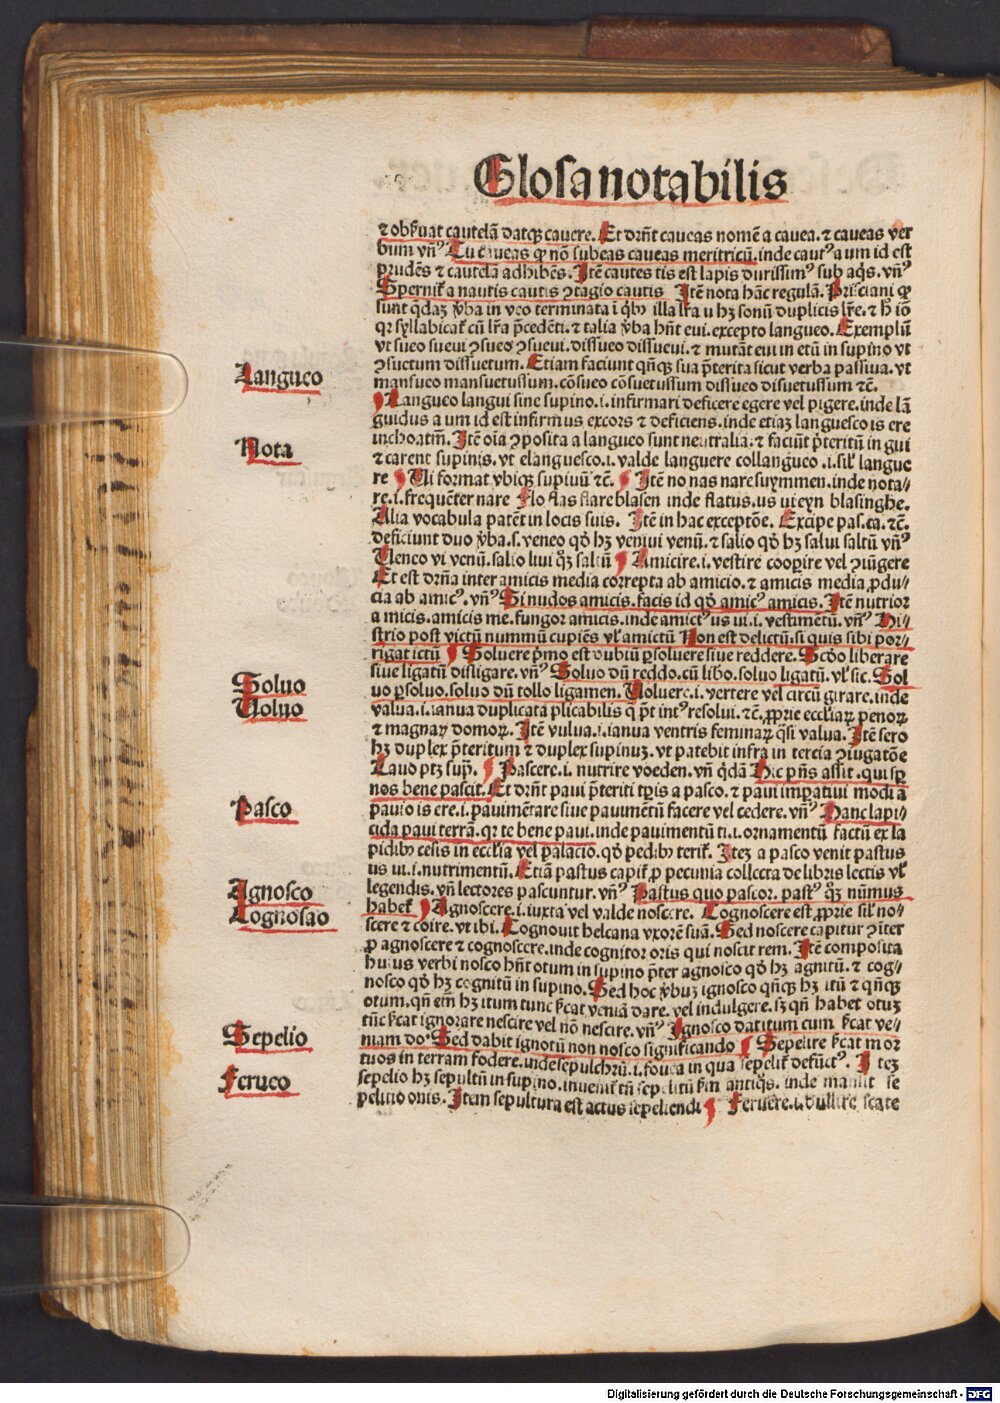 Glosa notabilis
⁊ obẜuat cautelã datqꝫ cauere. Et dr̃nt caueas nomẽ a cauea. ⁊ caueas ver
bum vñꝰ Tu caueas qꝫ nõ subeas caueas meritricũ. inde cautꝰ a um id est
prudẽs ⁊ cautelã adhibẽs. Itẽ cautes tis est lapis durissimꝰ sub aq̃s. vñꝰ
Spernit̃ a nautis cautis ꝯtagio cautis Itẽ nota hãc regulã. Prisciani qꝫ
sunt q̃daꝫ v̾ba in veo terminata ĩ qͥbꝰ illa lr̃a u hꝫ sonũ duplicis lr̃e. ⁊ h̃ iõ
qꝛ syllabicat̃ cũ lr̃a p̃cedẽti. ⁊ talia v̾ba hñt eui. excepto langueo. Exemplũ
vt sueo sueui ꝯsueo ꝯsueui. dissueo dissueui. ⁊ mutãt eui in etũ in supino vt
ꝯsuetum dissuetum. Etiam faciunt qñqꝫ sua p̃terita sicut verba passiua. vt
mansueo mansuetussum. cõsueo cõsuetussum dissueo disuetussum ⁊c̃.
Langueo
Langueo langui sine supino .i. infirmari deficere egere vel pigere. inde lã
guidus a um id est infirmus excors ⁊ deficiens. inde etiaꝫ languesco is ere
inchoatiũ. Itẽ oĩa ꝯposita a langueo sunt neutralia. ⁊ faciũt p̃teritũ in gui
Nota
⁊ carent supinis. vt elanguesco .i. valde languere collangueo .i. sil̃ langue
re Ui format vbiqꝫ supiuũ ⁊c̃. Itẽ no nas nare suymmen. inde nota⸗
re .i. frequẽter nare Flo flas flare blasen inde flatus. us ui eyn blasinghe.
Alia vocabula patẽt in locis suis. Itẽ in hac exceptõe. Excipe pas. ca. ⁊c̃.
deficiunt duo v̾ba .s. veneo qđ hꝫ veniui venũ. ⁊ salio qđ hꝫ salui saltũ vñꝰ
Uenco vi venũ. salio liui qꝫ saltũ Amicire .i. vestire cooꝑire vel ꝯiũgere
Et est dr̃ña inter amicis media correpta ab amicio. ⁊ amicis media ꝓdu⸗
cta ab amicꝰ. vñꝰ Si nudos amicis. facis id qđ amicꝰ amicis. Itẽ nutrior
a micis. amicis me. fungor amicis. inde amictꝰ us ui .i. vestimẽtũ. vñꝰ Hi⸗
strio post victũ nummũ cupiẽs vl̃ amictũ Non est delictũ. si quis sibi por⸗
rigat ictũ Soluere p̃mo est dubiũ ꝑsoluere siue reddere. Scđo liberare
Soluo
siue ligatũ disligare. vñꝰ Soluo dũ reddo. cũ libo. soluo ligatũ. vl̃ sic. Sol
Uoluo
uo ꝑsoluo. soluo dũ tollo ligamen. Uoluere .i. vertere vel circũ girare. inde
valua .i. ianua duplicata plicabilis q p̃t intꝰ resolui. ⁊c̃. ꝓprie eccl̃iaꝝ penoꝝ
⁊ magnaꝝ domoꝝ. Itẽ vulua .i. ianua ventris feminaꝝ q̃si valua. Itẽ sero
hꝫ duplex p̃teritum ⁊ duplex supinuꝫ. vt patebit infra in tercia ꝯiugatõe
Lauo ptꝫ sup̃. Pascere .i. nutrire voeden. vñ q̃dã Hic p̃ns assit. qui sꝑ
nos bene pascit. Et dr̃nt paui p̃teriti tꝑis a pasco. ⁊ paui imꝑatiui modi a
Pasco
pauio is ere .i. pauimẽtare siue pauimẽtũ facere vel cedere. vñꝰ Hanc lapi⸗
cida paui terrã. qꝛ te bene paui. inde pauimẽtũ ti .i. ornamentũ factũ ex la
pidibꝰ cesis in eccl̃ia vel palacio. qđ pedibꝰ terit̃. Iteꝫ a pasco venit pastus
us ui .i. nutrimentũ. Etiã pastus capit̃ ꝓ pecunia collecta de libris lectis vl̃
Agnosco
legendis. vñ lectores pascuntur. vñꝰ Pastus quo pascor. pastꝰ qꝫ nũmus
Cognosao
habet̃ Agnoscere .i. iuxta vel valde noscere. Cognoscere est ꝓprie sil̃ no⸗
scere ⁊ coire. vt ibi. Cognouit helcana vxorẽ suã. Sed noscere capitur ꝯiter
ꝓ agnoscere ⁊ cognoscere. inde cognitor oris qui noscit rem. Itẽ composita
huius verbi nosco hñt otum in supino p̃ter agnosco qđ hꝫ agnitũ. ⁊ cog⸗
nosco qđ hꝫ cognitũ in supino. Sed hoc v̾buꝫ ignosco qñqꝫ hꝫ itũ ⁊ qñqꝫ
otum. qñ em̃ hꝫ itum tunc ẜcat veniã dare. vel indulgere. sꝫ qñ habet otuꝫ
tũc ẜcat ignorare nescire vel nõ nescire. vñꝰ Ignosco dat itum cum ẜcat ve⸗
Sepelio
niam do. Sed dabit ignotũ non nosco significando Sepelire ẜcat mor
tuos in terram fodere. inde sepulchrũ .i. fouea in qua sepelit̃ defũctꝰ. Iteꝫ
Ferueo
sepelio hꝫ sepultũ in supino. inuenit̃ tñ sepelitũ ẜm antiq̃s. inde manſit se
pelitio onis. Item sepultura est actus sepeliendi Feruere .i. bullire scate
Digitalisierung gefördert durch die Deutsche Forschungsgemeinschaft - DFG